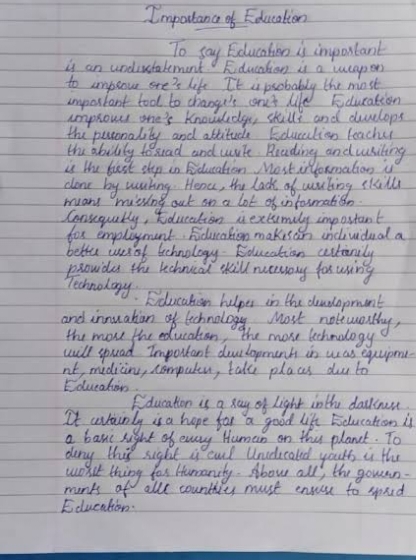 Importance of Education
To say Education is important
is an understatement. Education is a weapon
to improve one's life. It is probably the most
important tool to change's one's life. Education
improves one's knowledge, skills and develops
the personality and attitude. Education teaches
the ability to read and write. Reading and writing
is the first step in Education. Most information is
done by writing. Hence, the lack of writing skills
means missing out on a lot of information.
Consequetly, Education is extremely important
for employment. Education makes an individual a
better user of technology. Education certainly
provides the technical skill necessary for using
Technology.
Education helpes in the development
and innvation of technology. Most noteworthy,
the more the education, the more technology
will spread. Important developments in war equipme-
nt, medicine, computers, take places due to
Education.
Education is a ray of light in the darkness.
It certainly is a hope for a good life. Education is
a basic right of every Human on this planet. To
deny this right is evil. Uneducated youth is the
worst thing for Humanity. Above all, the govern-
ments of all countries must ensure to spred
Education.